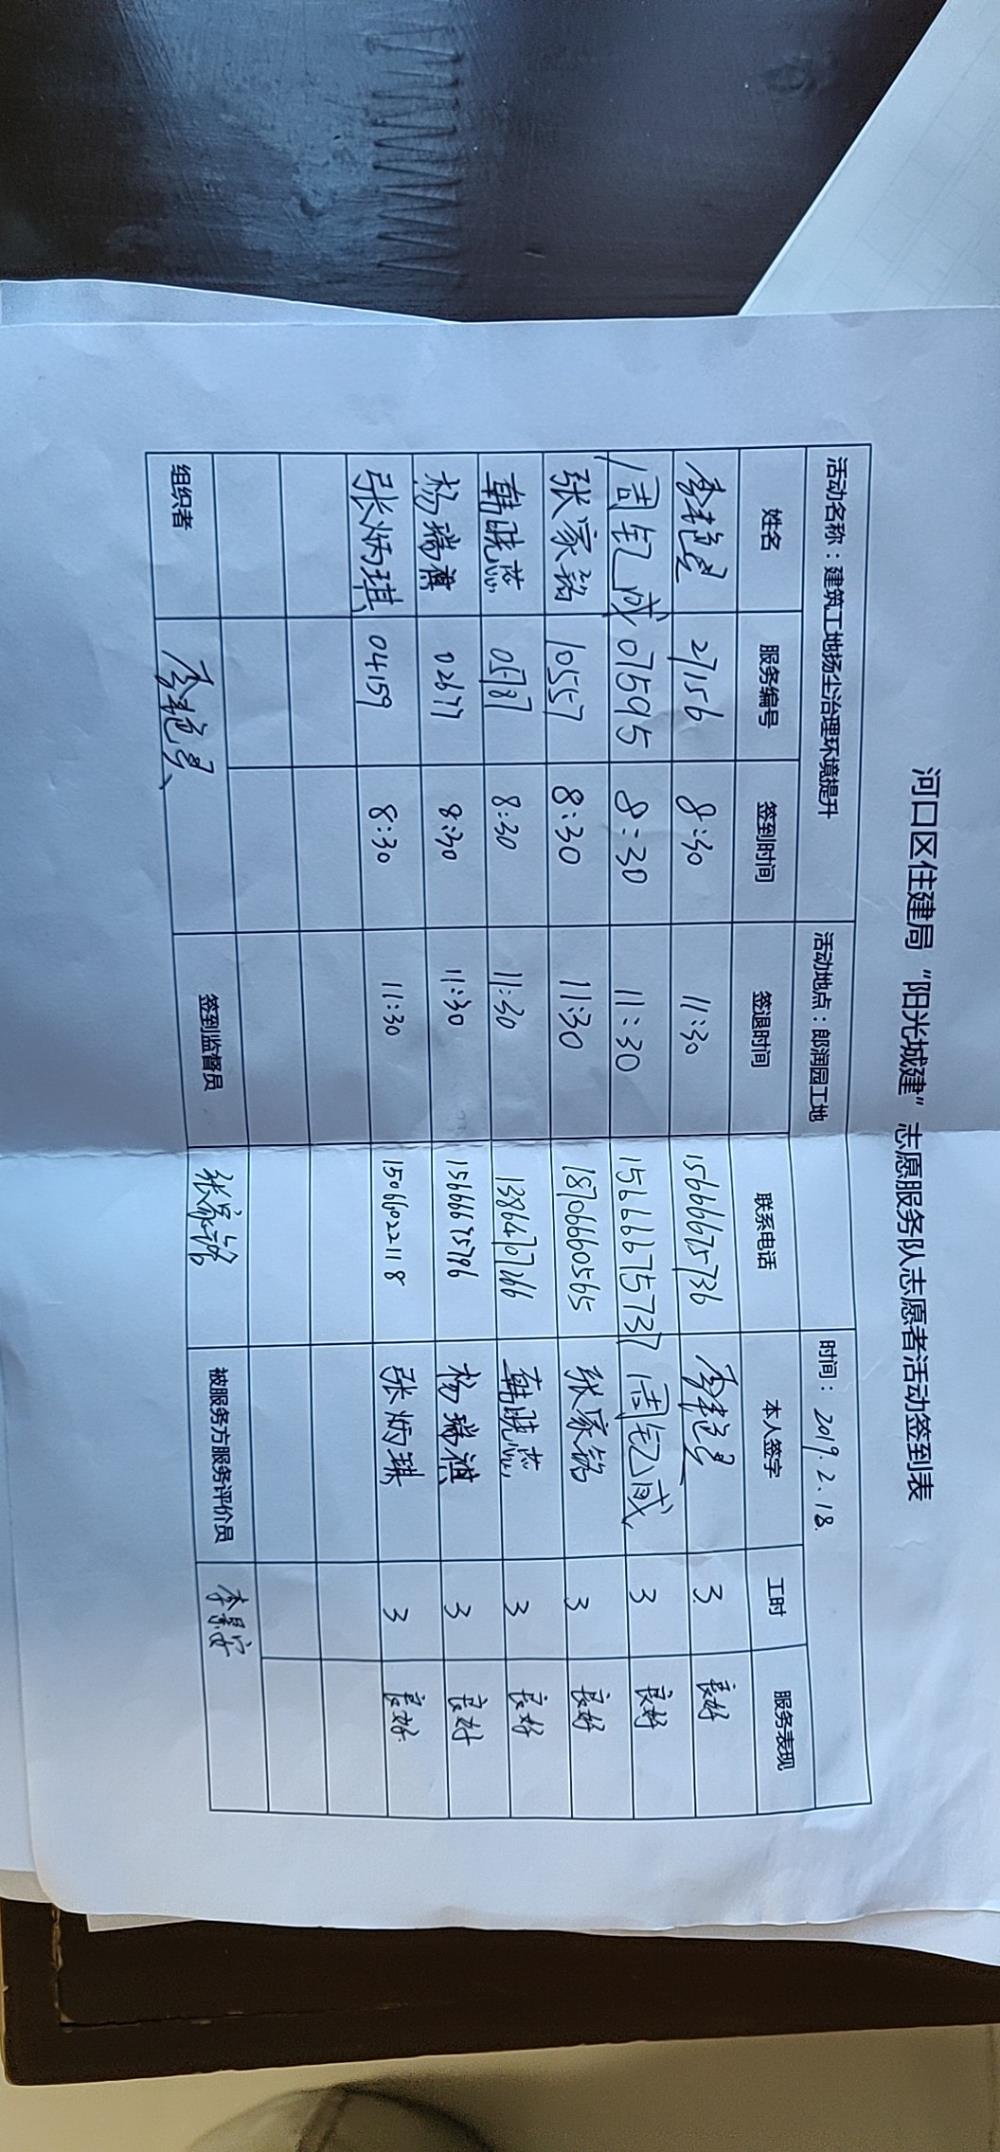 河口区住建局“阳光城建”志愿服务队志愿者活动签到表
活动名称：建筑工地扬尘治理环境提升 活动地点：郎润园工地 时间：2019.2.18.
姓名 服务编号 签到时间 签退时间 联系电话 本人签字 工时 服务表现
27156 8:30 11:30 15666675736 3 良好
07595 8:30 11:30 15666675737 3 良好
张家铭 10557 8:30 11:30 18706660565 张家铭 3 良好
韩晓蕊 05787 8:30 11:30 13864707266 韩晓蕊 3 良好
杨瑞祺 02677 8:30 11:30 15666675796 杨瑞祺 3 良好
张炳琪 04159 8:30 11:30 15066022118 张炳琪 3 良好
组织者 签到监督员 张家铭 被服务方服务评价员